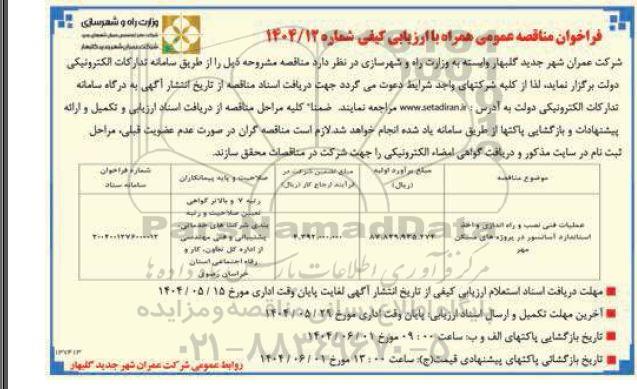 وزارت راه و شهرسازی
شرکت عمران شهر جدید گلبهار
فراخوان مناقصه عمومی همراه با ارزیابی کیفی شماره ۱۴۰۴/۱۲
شرکت عمران شهر جدید گلبهار وابسته به وزارت راه و شهرسازی در نظر دارد مناقصه مشروحه ذیل را از طریق سامانه تدارکات الکترونیکی
دولت برگزار نماید، لذا از کلیه شرکتهای واجد شرایط دعوت می گردد جهت دریافت اسناد مناقصه از تاریخ انتشار آگهی به درگاه سامانه
تدارکات الکترونیکی دولت به آدرس : www.setadiran.ir مراجعه نمایند. ضمنا" کلیه مراحل مناقصه از دریافت اسناد ارزیابی و تکمیل و ارائه
پیشنهادات و بازگشایی پاکتها از طریق سامانه یاد شده انجام خواهد شد.لازم است مناقصه گران در صورت عدم عضویت قبلی، مراحل
ثبت نام در سایت مذکور و دریافت گواهی امضاء الکترونیکی را جهت شرکت در مناقصات محقق سازند.
موضوع مناقصه
مبلغ برآورد اولیه
(ریال)
مبلغ تضمین شرکت در
فرآیند ارجاع کار (ریال)
صلاحیت و پایه پیمانکاران
شماره فراخوان
سامانه ستاد
عملیات فنی نصب و راه اندازی و اخذ
استاندارد آسانسور در پروژه های مسکن
مهر
۸۷,۸۳۹,۹۳۵,۲۷۴
۴,۳۹۲,۰۰۰,۰۰۰
رتبه ۷ و بالاتر گواهی
تعیین صلاحیت و رتبه
بندی شرکت های خدماتی
پشتیبانی و فنی مهندسی
از اداره کل تعاون، کار و
رفاه اجتماعی استان
خراسان رضوی
۲۰۰۴۰۰۱۲۷۶۰۰۰۰۱۲
مهلت دریافت اسناد استعلام ارزیابی کیفی از تاریخ انتشار آگهی لغایت پایان وقت اداری مورخ ۱۵ / ۰۵ / ۱۴۰۴
آخرین مهلت تکمیل و ارسال اسناد ارزیابی پایان وقت اداری مورخ ۲۹ / ۰۵ / ۱۴۰۴
تاریخ بازگشایی پاکتهای الف و ب: ساعت ۰۰ : ۰۹ مورخ ۰۱ / ۰۶ / ۱۴۰۴
تاریخ بازگشائی پاکتهای پیشنهادی قیمت(ج): ساعت ۰۰ : ۱۳ مورخ ۰۱ / ۰۶ / ۱۴۰۴
روابط عمومی شرکت عمران شهر جدید گلبهار
ParsNamadData
۰۲۱-۸۸۳۴۹۶۷۰-۵